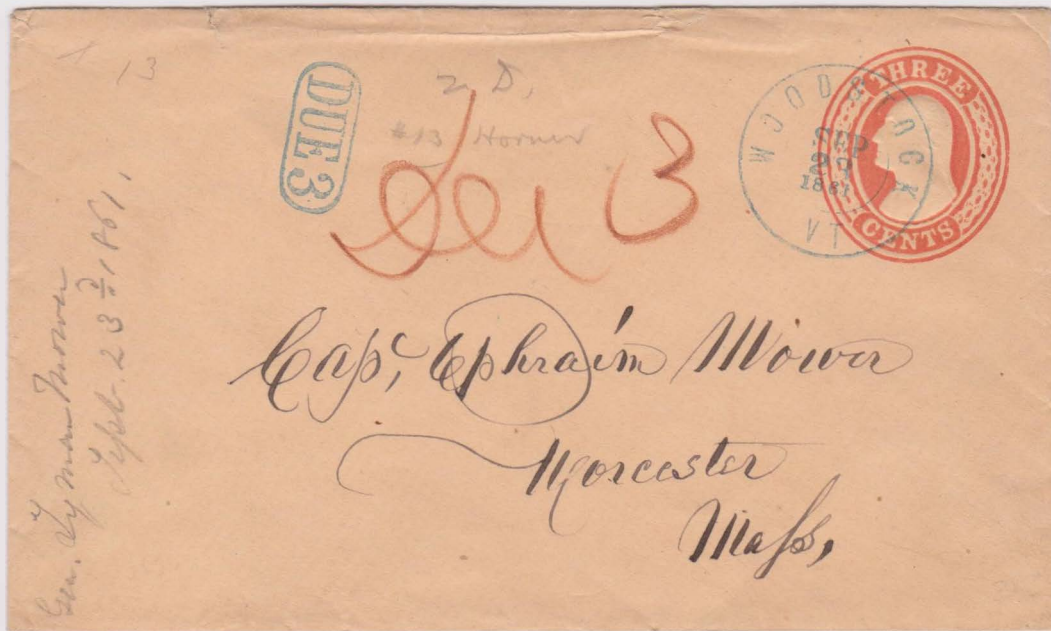 13
DUE 3
2 D.
#13 Horner
Due 3
WOODSTOCK
SEP
1861
VT
THREE
CENTS
Capt, Ephraim Mower
Worcester
Mass,
Gen. Lyman Mower
Sept. 23d/61.